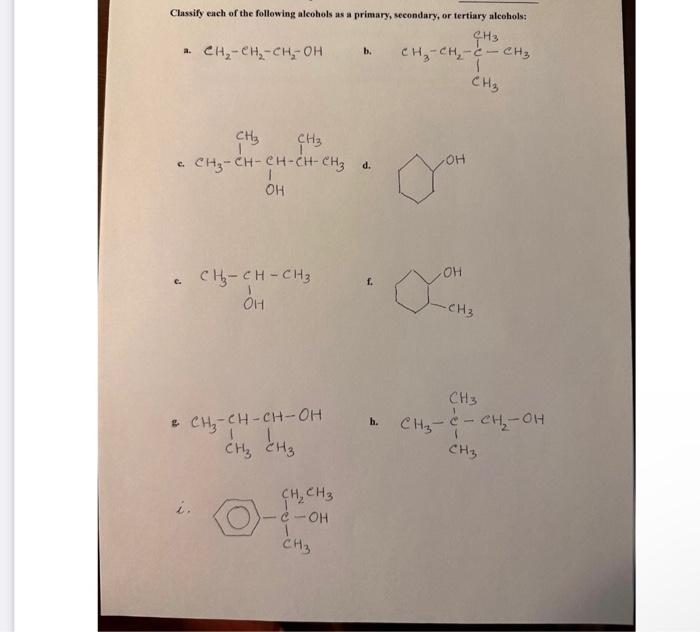 Classify each of the following alcohols as a primary, secondary, or tertiary alcohols:
a. CH₂-CH₂-CH₂-OH
b. CH₃
CH₃-CH₂-C-CH₃
CH₃
c. CH₃ CH₃
CH₃-CH-CH-CH-CH₃
OH
d. OH
e. CH₃-CH-CH₃
OH
f. OH
-CH₃
g. CH₃-CH-CH-OH
CH₃ CH₃
h. CH₃
CH₃-C-CH₂-OH
CH₃
i. CH₂CH₃
-C-OH
CH₃